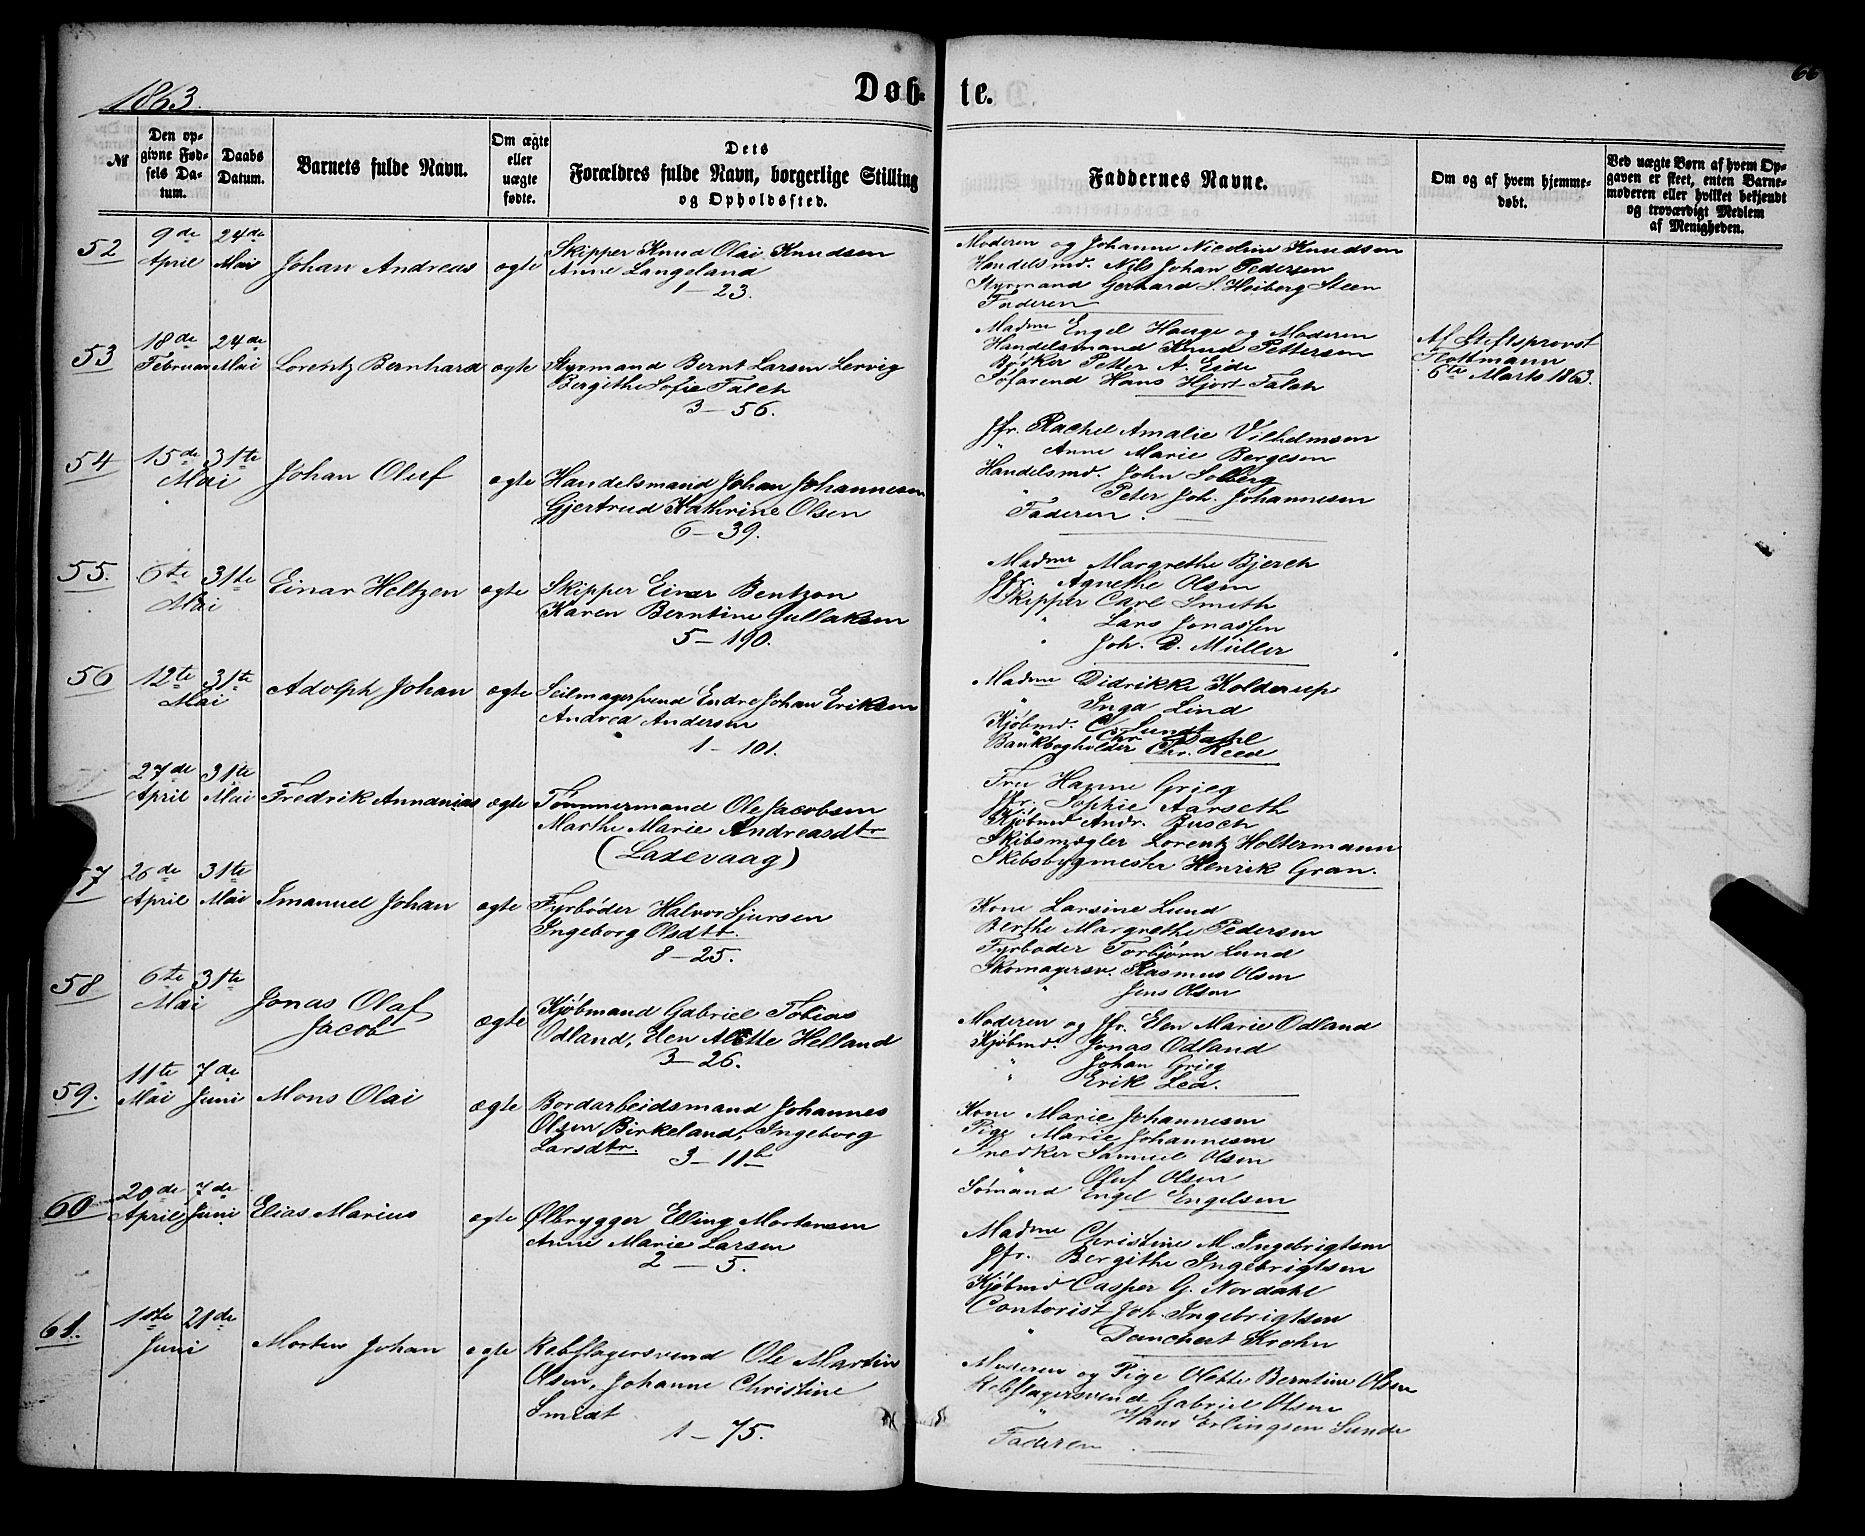 1863.
Døb-te.
66
№
Den opgivne Fødsels Datum.
Daabs Datum.
Barnets fulde Navn.
Om ægte eller uægte fødte.
Dets Forældres fulde Navn, borgerlige Stilling og Opholdssted.
Faddernes Navne.
Om og af hvem hjemmedøbt.
Ved uægte Børn af hvem Opgaven er skeet, enten Barnemoderen eller hvilket bekjendt og troværdigt Medlem af Menigheden.
52
9de April
24de Mai
Johan Andreas
ægte
Skipper Knud Olai Knudsen
Anne Langeland
1 - 23.
Moderen og Johanne Nicoline Knudsen
Handelsmd. Nils Johan Pedersen
Styrmand Gerhard S. Heiberg Steen
Faderen
53
18de Februar
24de Mai
Lorentz Bernhard
ægte
Styrmand Bernt Larsen Lervig
Bergithe Sofie Falch
3 - 56.
Madme Engel Hauge og Moderen
Handelsmand Knud Pettersen
Bødker Petter A. Eide
Søfarend Hans Hjort Falch
Af Stiftsprovst
6te Marts 1863.
54
15de
31te
Mai
Johan Oluf
ægte
Handelsmand Johan Johannesen
Gjertrud Kathrine Olsen
6 - 39.
Jfr. Rachel Amalie Vilhelmsen
" Anne Marie Bergesen
Handelsmd. John Solberg
" Peter Joh. Johannesen
Faderen.
55.
6te
31te
Mai
Einar Heltzen
ægte
Skipper Einar Bentzon
Karen Berntine Gullaksen
5 - 190.
Madme Margrethe Bjerch
Jfr. Agnethe Olsen
Skipper Carl Smith
" Lars Jonassen
" Joh. D. Müller
56
12te
31te
Mai
Adolph Johan
ægte
Seilmagersvend Endre Johan Eriksen
Andrea Andersen
1 - 101.
Madme Didrikke Kolderup
" Inga Lind
Kjøbmd. C. Lund
" Chr. Dahl
Bankbogholder Chr. Reed
27de April
31te Mai
Fredrik Annanias
ægte
Tømmermand Ole Jacobsen
Marthe Marie Andreasdtr
(Laxevaag)
Fru Hanne Grieg
Jfr. Sophie Aarseth
Kjøbmd Andr. Busch
Skibsmægler Lorentz Holtermann
Skibsbygmester Henrik Gran.
7
26de April
31te Mai
Imanuel Johan
ægte
Fyrbøder Halvor Sjursen
Ingeborg Olsdtr.
8 - 25.
Kone Larsine Lund
Berthe Margrethe Pedersen
Fyrbøder Torbjørn Lund
Skomagersv. Rasmus Olsen
" Jens Olsen
58
6te
31te
Mai
Jonas Olaf
Jacob
ægte
Kjøbmand Gabriel Tobias
Odland, Elen Alette Helland
3 - 26.
Moderen og Jfr. Elen Marie Odland
Kjøbmd. Jonas Odland
" Johan Grieg
" Erik Lea.
59.
11te Mai
7de Juni
Mons Olai
ægte
Bordarbeidsmand Johannes
Olsen Birkeland, Ingeborg
Larsdtr.
3 - 11b
Kone Marie Johannesen
Pige Marie Johannesen
Snedker Samuel Olsen
" Oluf Olsen
Sømand Engel Engelsen
60
29de April
7de Juni
Elias Marius
ægte
Ølbrygger Elling Mortensen
Anne Marie Larsen
2 - 5.
Madme Christine M. Ingebrigtsen
Jfr. Bergithe Ingebrigtsen
Kjøbmd Casper G. Nordahl
Contorist Joh. Ingebrigtsen
" Danchert Krohn
61.
1ste
21de
Juni
Morten Johan
ægte
Rebslagersvend Ole Martin
Olsen, Johanne Christine
Smidt
1 - 75.
Moderen og Pige Olette Berntine Olsen
Rebslagersvend Gabriel Olsen
" Hans Erlingsen Sunde
Faderen.